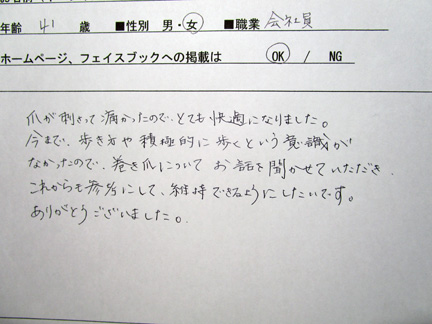 年齢 41 歳 ■性別 男・女 ■職業 会社員
ホームページ、フェイスブックへの掲載は OK / NG
爪が刺さって痛かったので、とても快適になりました。
今まで、歩き方や積極的に歩くという意識が
なかったので、巻き爪について お話を聞かせていただき、
これからも参考にして、維持できるようにしたいです。
ありがとうございました。